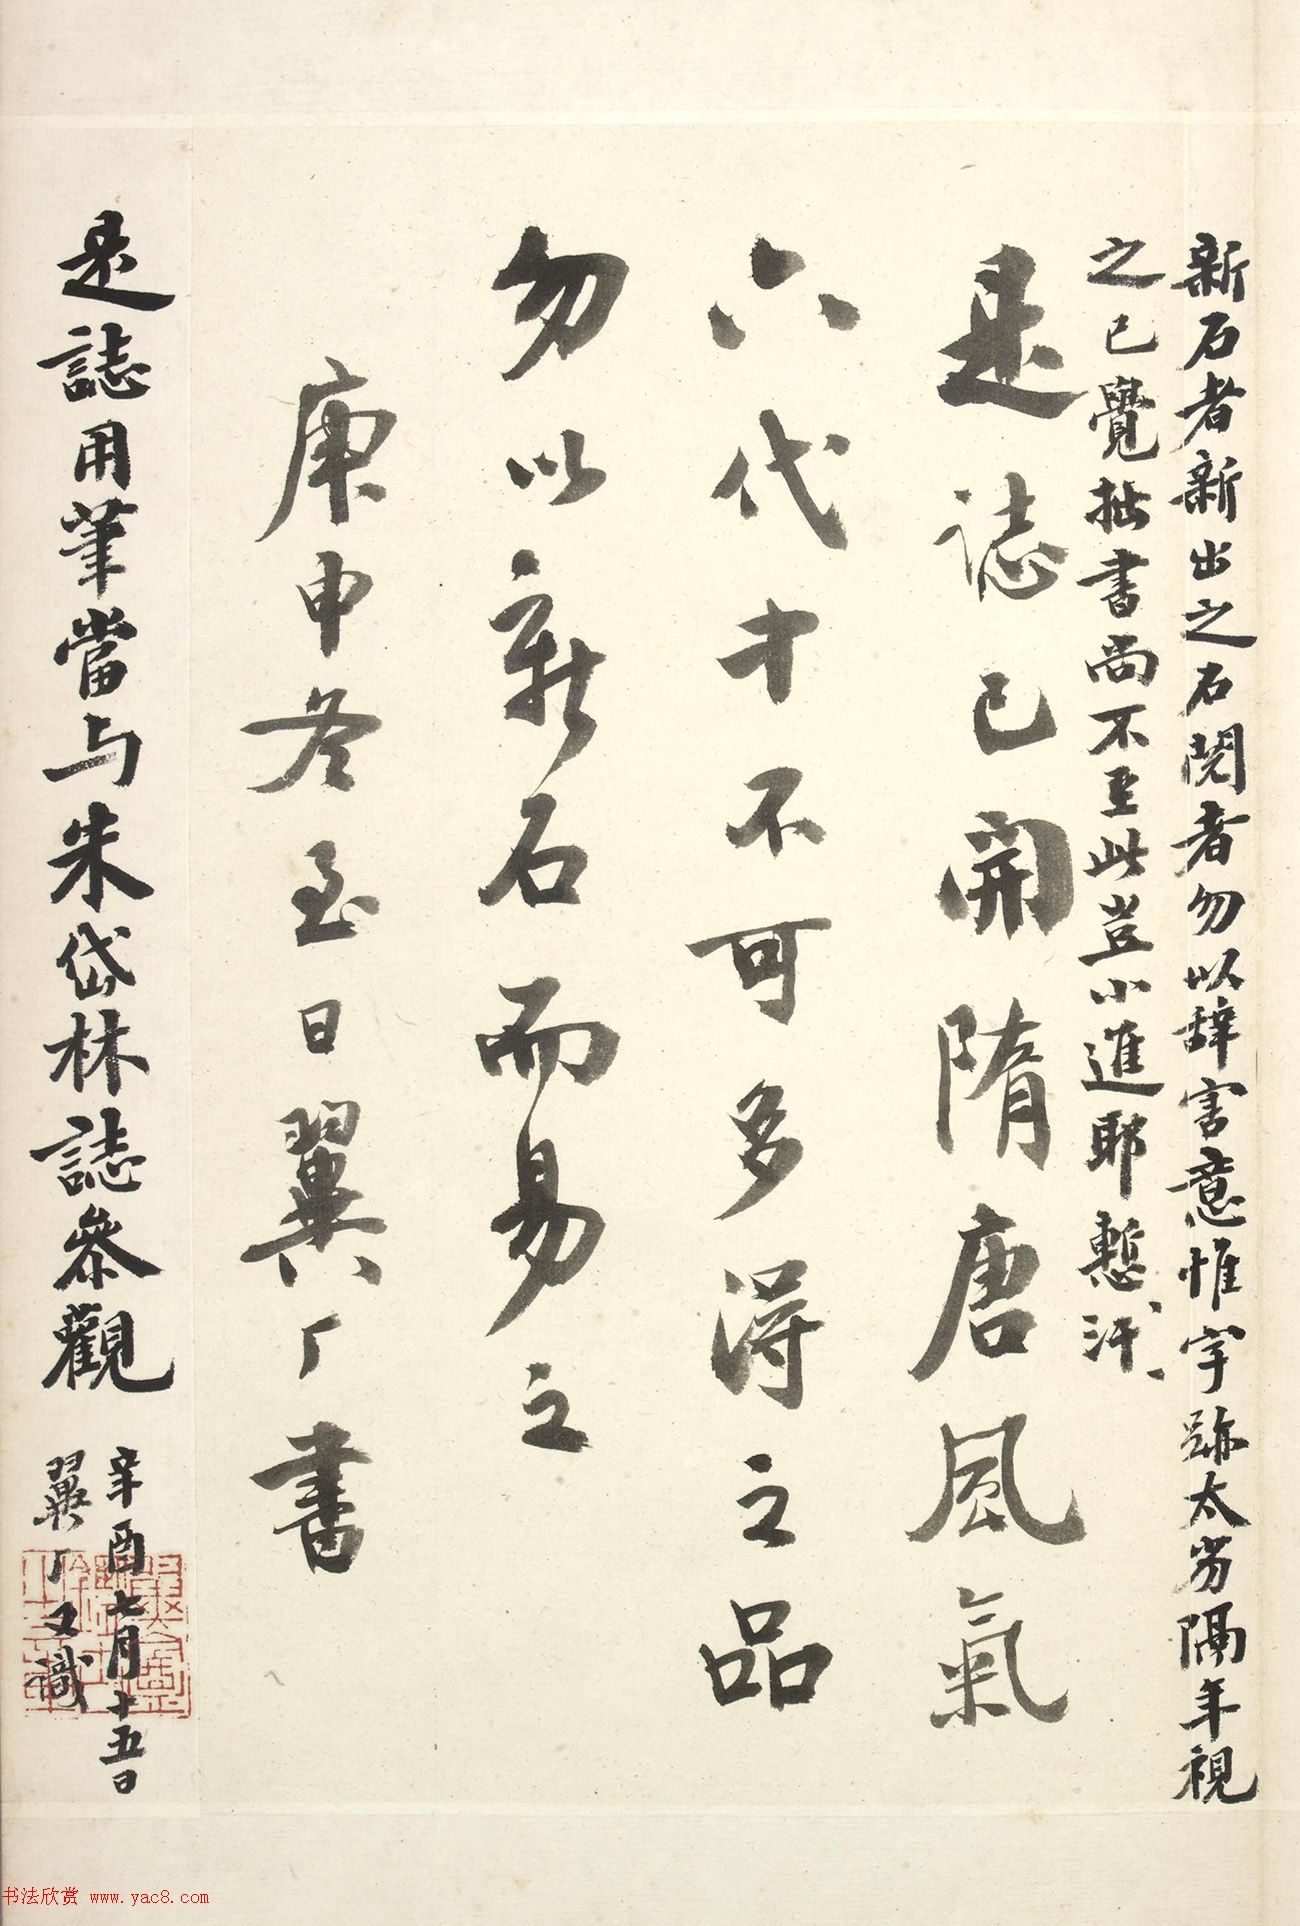 新石者新出之石閱者勿以辭害意惟字跡太劣隔年視
之已覺拙書尚不至此豈小進耶慙汗
是誌已開隋唐風氣
六代才不可多得之品
勿以新石而易之
庚申冬至日翼厂書
是誌用筆當与朱岱林誌參觀
辛酉七月十五日
翼厂又識
书法欣赏 www.yac8.com